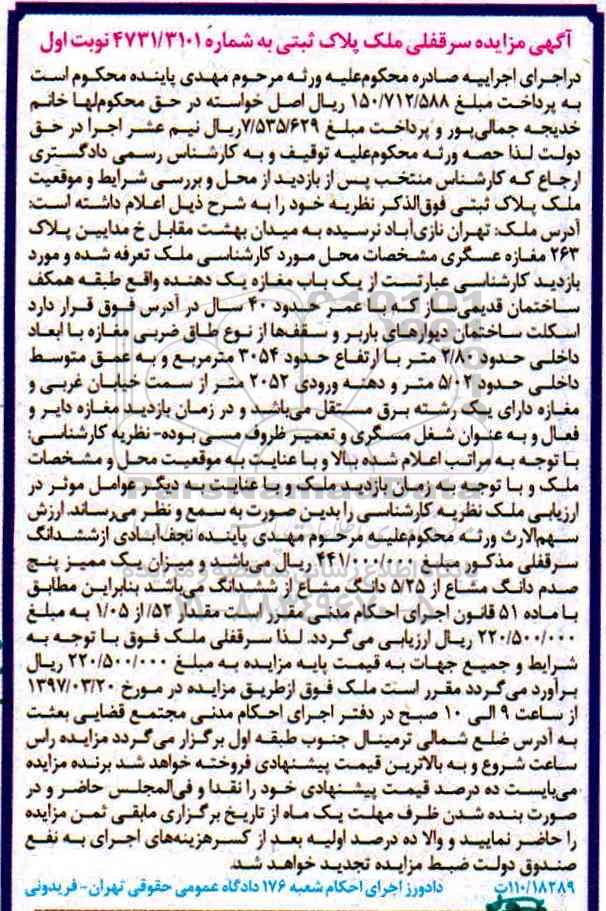 آگهی مزایده سرقفلی ملک پلاک ثبتی به شماره ۴۷۳۱/۳۱۰۱ نوبت اول
دراجرای اجراییه صادره محکوم‌علیه ورثه مرحوم مهدی پاینده محکوم است
به پرداخت مبلغ ۱۵۰/۷۱۲/۵۸۸ ریال اصل خواسته در حق محکوم‌لها خانم
خدیجه جمالی‌پور و پرداخت مبلغ ۷/۵۳۵/۶۲۹ریال نیم عشر اجرا در حق
دولت لذا حصه ورثه محکوم‌علیه توقیف و به کارشناس رسمی دادگستری
ارجاع که کارشناس منتخب پس از بازدید از محل و بررسی شرایط و موقعیت
ملک پلاک ثبتی فوق‌الذکر نظریه خود را به شرح ذیل اعلام داشته است:
آدرس ملک: تهران نازی‌آباد نرسیده به میدان بهشت مقابل خ مدایین پلاک
۲۶۳ مغازه عسگری مشخصات محل مورد کارشناسی ملک تعرفه شده و مورد
بازدید کارشناسی عبارتست از یک باب مغازه یک دهنده واقع طبقه همکف
ساختمان قدیمی‌ساز که با عمر حدود ۴۰ سال در آدرس فوق قرار دارد
اسکلت ساختمان دیوارهای باربر و سقف‌ها از نوع طاق ضربی مغازه با ابعاد
داخلی حدود ۲/۸۰ متر با ارتفاع حدود ۳۰۵۴ مترمربع و به عمق متوسط
داخلی حدود ۵/۰۲ متر و دهنه ورودی ۲۰۵۲ متر از سمت خیابان غربی و
مغازه دارای یک رشته برق مستقل می‌باشد و در زمان بازدید مغازه دایر و
فعال و به عنوان شغل مسگری و تعمیر ظروف مسی بوده- نظریه کارشناسی:
با توجه به مراتب اعلام شده ببالا و با عنایت به موقعیت محل و مشخصات
ملک و با توجه به زمان بازدید ملک و با عنایت به دیگر عوامل موثر در
ارزیابی ملک نظریه کارشناسی را بدین صورت به سمع و نظر می‌رساند. ارزش
سهم‌الارث ورثه محکوم‌علیه مرحوم مهدی پاینده نجف‌آبادی ازششدانگ
سرقفلی مذکور مبلغ ۴۴۱/۰۰۰/۰۰۰ ریال می‌باشد و میزان یک ممیز پنج
صدم دانگ مشاع از ۵/۲۵ دانگ مشاع از ششدانگ می‌باشد بنابراین مطابق
با ماده ۵۱ قانون اجرای احکام مدنی مقرر است مقدار ۵۲/. از ۱/۰۵ به مبلغ
۲۲۰/۵۰۰/۰۰۰ ریال ارزیابی می‌گردد. لذا سرقفلی ملک فوق با توجه به
شرایط و جمیع جهات به قیمت پایه مزایده به مبلغ ۲۲۰/۵۰۰/۰۰۰ ریال
برآورد می‌گردد مقرر است ملک فوق ازطریق مزایده در مورخ ۱۳۹۷/۰۳/۲۰
از ساعت ۹ الی ۱۰ صبح در دفتر اجرای احکام مدنی مجتمع قضایی بعثت
به آدرس ضلع شمالی ترمینال جنوب طبقه اول برگزار می‌گردد مزایده راس
ساعت شروع و به بالاترین قیمت پیشنهادی فروخته خواهد شد برنده مزایده
می‌بایست ده درصد قیمت پیشنهادی خود را نقدا و فی‌المجلس حاضر و در
صورت بنده شدن ظرف مهلت یک ماه از تاریخ برگزاری مابقی ثمن مزایده
را حاضر نمایید و والا ده درصد اولیه بعد از کسرهزینه‌های اجرای به نفع
صندوق دولت ضبط مزایده تجدید خواهد شد.
۱۱۰/۱۸۲۸۹ت دادورز اجرای احکام شعبه ۱۷۶ دادگاه عمومی حقوقی تهران- فریدونی
ParsNamadData